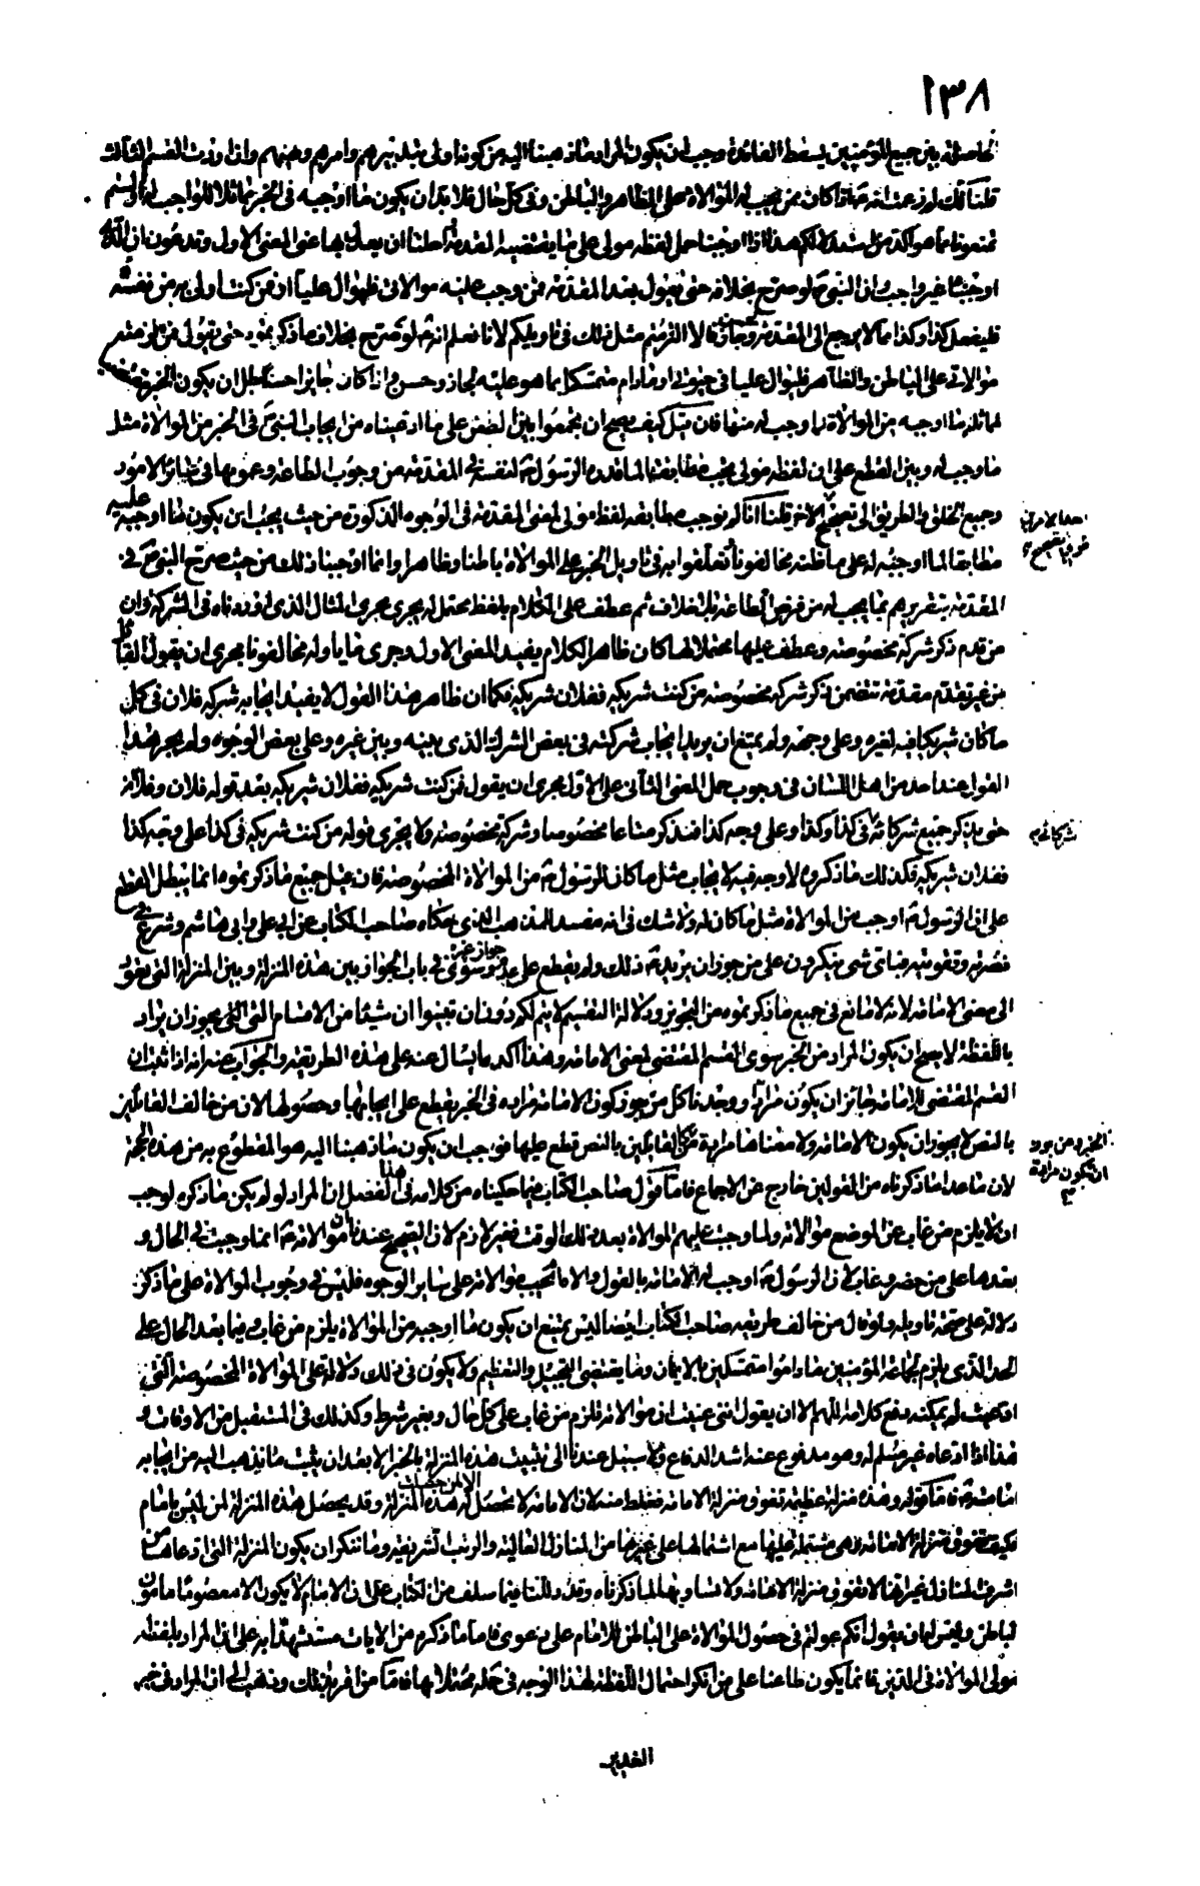 ١٣٨
حاصلة بين جميع المؤمنين يسقط الفائدة وجب ان يكون المراد ما ذهبنا اليه من كونه اولى بتدبيرهم وامرهم ونهيهم وان اردت القسم الثالث
قلنا لك لم زعمت انه عليه اذا كان ممن يجب له الموالاة على الظاهر والباطن وفي كل حال فلا بد ان يكون ما اوجبه في الخبر مماثلا للواجب له
اوجبتها غير واجب وان النبي لو صرح بخلافه حتى يقول بعد المقدمة فمن وجب عليه موالاتي فليوال عليا او فمن كنت اولى به من نفسه
فليفعل كذا وكذا مما لا يرجع الى المقدمة
موالاتي على الباطن والظاهر فليوال عليا في حيوتي او ما دام متمسكا بما هو عليه لجاز وحسن واذا كان جايزا حسنا بطل ان يكون الخبر
لما اوجبه من الموالاة لما وجب له منها فان قيل كيف يصح ان تجمعوا بين الطعن على ما ادعيناه من ايجاب النبي في الخبر من الموالاة مثل
ما وجب له وبين القطع على ان لفظة مولى يجب مطابقتها لما قدره الرسول لنفسه في المقدمة من وجوب الطاعة وعمومها في ساير الامور
وجميع الخلق والطريق الى تصحيح الاخر قلنا انا لم نوجب مطابقة لفظ مولى لمعنى المقدمة في الوجوه المذكورة من حيث يجب ان يكون ما اوجبه
مطابقا لما اوجب له على ما ظنه مخالفونا وتعلقوا به في تاويل الخبر على الموالاة باطنا وظاهرا وانما اوجبنا ذلك من حيث صرح النبي في
المقدمة بتقريرهم بما يجب له من فرض الطاعة بلا خلاف ثم عطف على الكلام بلفظ محتمل له يجري مجرى المثال الذي اوردناه في الشركة وان
من تقدم ذكر شركة مخصوصة وعطف عليها محتملا لها كان ظاهر الكلام يفيد المعنى الاول وجرى ما تاوله مخالفونا مجرى ان يقول القايل
من غير تقدم مقدمة تتضمن ذكر شركة مخصوصة من كنت شريكه ففلان شريكه فكما ان ظاهر هذا القول لا يفيد ايجابه شركة فلان في كل
ما كان شريكا فيه لغيره وعلى وجهه ولم يمتنع ان يريد ايجاب شركته في بعض الشرك الذي بينه وبين غيره وعلى بعض الوجوه ولم يجر هذا
القول عند احد من اهل اللسان في وجوب حمل المعنى الثاني على الاول مجرى ان يقول فمن كنت شريكه ففلان شريكه بعد قوله فلان وفلان
حتى يذكر جميع شركائه في كذا وكذا وعلى وجه كذا فيذكر متاعا مخصوصا وشركة مخصوصة ولا يجري قوله من كنت شريكه في كذا على وجه كذا
ففلان شريكه فكذلك ما ذكروه لا وجه فيه لايجاب مثل ما كان للرسول من الموالاة المخصوصة فان قيل جميع ما ذكرتموه انما يبطل القطع
على ان الرسول اوجب من الموالاة مثل ما كان له ولا شك في انه مفسد للمذهب الذي حكاه صاحب الكتاب عن ابي علي وابي هاشم وشرع في
نصرته وتقويته فباي شيء ينكرون على من جوز ان يريد ذلك ولم يقطع عليه وسوى في باب الجواز بين هذه المنزلة وبين المنزلة التي يعود
الى معنى الامامة لانه لا مانع في جميع ما ذكرتموه من التجويز ودلالة التقسيم لا يتم لكم دون ان تبينوا ان شيئا من الاقسام التي يجوز ان يراد
باللفظة لا يصح ان يكون المراد من الخبر سوى القسم المقتضي لمعنى الامامة وهذا اكد ما يسال عنه على هذه الطريقة والجواب عنه انه اذا ثبت ان
القسم المقتضي للامامة جائز ان يكون مرادا ووجدنا كل من جوز كون الامامة مرادة في الخبر يقطع على ايجابها وحصولها لان من خالف القائلين
بالنص لا يجوز ان يكون الامامة ولا معناها مرادة من القائلين بالنص قطع عليها فوجب ان يكون ما ذهبنا اليه هو المقطوع به من هذه الجهة
لان ما عدا ما ذكرناه من القولين خارج عن الاجماع فاما قول صاحب الكتاب فيما حكيناه من كلامه في هذا الفصل ان المراد لو لم يكن ما ذكره لوجب
ان لا يلزم من غاب عن الموضع موالاته ولما وجبت عليهم الموالاة بعد ذلك الوقت فغير لازم لان الصحيح عندنا ان موالاته انما وجبت في الحال و
بعدها على من حضر وغاب لان الرسول اوجب له الامامة بالقول والامام تجب موالاته على ساير الوجوه فليس في وجوب الموالاة على ما ذكر
دلالة على صحة تاويله ولو قال من خالف طريقة صاحب الكتاب ايضا ليس يمتنع ان يكون ما اوجبه من الموالاة يلزم من غاب وفيما بعد الحال على
الحد الذي يلزم لجماعة المؤمنين ما داموا متمسكين بالايمان وما يقتضي التبجيل والتعظيم ولا يكون في ذلك دلالة على الموالاة المخصوصة التي
ادعيت لم يمكنه دفع كلامه اللهم الا ان يقول انني عنيت ان موالاته تلزم من غاب على كل حال وبغير شرط وكذلك في المستقبل من الاوقات و
هذا اذا ادعاه غير مسلم له وهو مدفوع عنه اشد الدفاع ولا سبيل عندنا الى تثبيت هذه المنزلة بالخبر الا بعد ان يثبت ما نذهب اليه من ايجابه
امامته فاما قوله وهذه منزلة عظيمة تفوق منزلة الامامة فغلط منه لان الامامة لا تحصل الا لمن حصلت له هذه المنزلة وقد يحصل هذه المنزلة لمن ليس بامام
فكيف تفوق منزلة الامامة وهي مشتملة عليها مع اشتمالها على غيرها من المنازل العالية والرتب الشريفة وما ننكر ان يكون المنزلة التي ادعاها من
اشرف المنازل غير انها لا تفوق منزلة الامامة ولا تساويها لما ذكرناه وقد دللنا فيما سلف من الكتاب على ان الامام لا يكون الا معصوما مامون
الباطن وليس له ان يقول انكم عولتم في حصول الموالاة على الباطن للامام على دعوى فاما ما ذكره من الايات مستشهدا به على ان المراد بلفظة
مولى الموالاة في الدين فانما يكون طاعنا على من انكر احتمال اللفظة لهذا الوجه في جملة محتملاتها فاما من اقر بذلك وذهب الى ان المراد في خبر
الغدير
شركائه